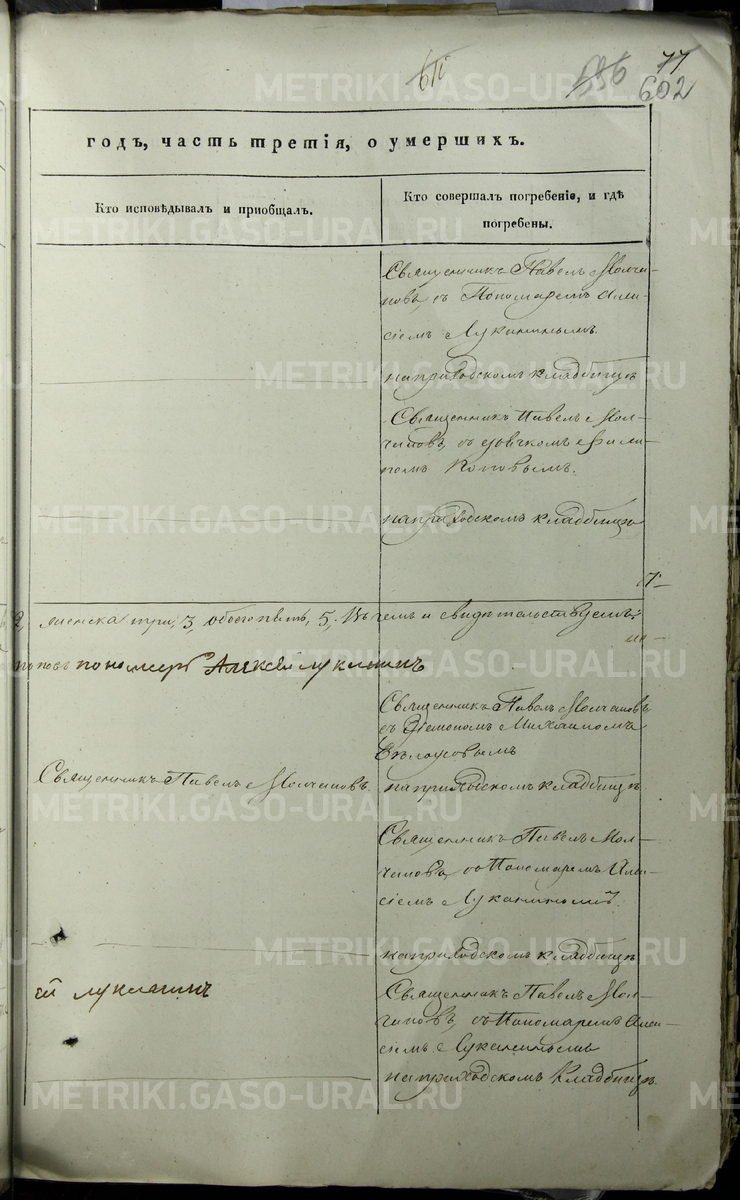 611
596
77
602
METRIKI.GASO-URAL.RU
годъ, часть третія, о умершихъ.
Кто исповѣдывалъ и приобщалъ.
Кто совершалъ погребеніе, и гдѣ
погребены.
Священникъ Павелъ Молча-
новъ, съ Пономаремъ Алек-
сіемъ Лукинымъ.
на приходскомъ кладбищѣ
Священникъ Павелъ Мол-
чановъ, съ дьячкомъ Фили-
помъ Поповымъ.
на приходскомъ кладбищѣ
женска три, 3, обоего пять, 5. Въ чемъ и свидѣтельствуемъ:
поповъ пономарь Алексей
Священникъ Павелъ Молчановъ
съ Діакономъ Михаиломъ
Священникъ Павелъ Молчановъ.
на приходскомъ кладбищѣ.
Священникъ Павелъ Мол-
чановъ, съ Пономаремъ Алек-
сіемъ
на приходскомъ кладбищѣ
ей
Священникъ Павелъ Мол-
чановъ, съ Пономаремъ Алек-
сіемъ
на приходскомъ кладбищѣ.